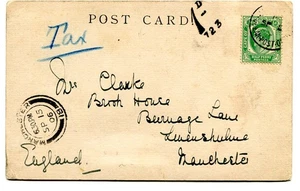 POST CARD
Tax
D
1
723
Mr Clarke
Brook House
Burnage Lane
Levenshulme
Manchester
England
MANCHESTER
6.30PM
SP 15
06